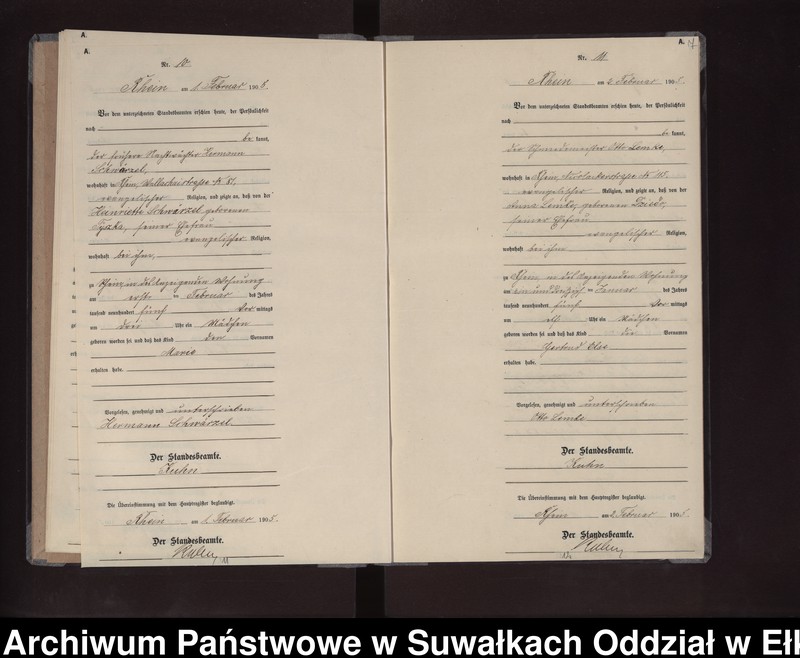 A.
A.
Nr. 10.
Rhein am 1 Februar 1905.
Vor dem unterzeichneten Standesbeamten erschien heute, der Persönlichkeit
nach
be kannt,
der frühere Nachtwächter Hermann
Schwärzel,
wohnhaft in Rhein, Wallacheistrasse N 81,
evangelischer Religion, und zeigte an, daß von der
Henriette Schwärzel geborenen
Tyzka, seiner Ehefrau
evangelischer Religion,
wohnhaft bei ihm,
zu Rhein in des Anzeigenden Wohnung
am erste n Februar des Jahres
tausend neunhundert fünf Vor mittags
um drei Uhr ein Mädchen
geboren worden sei und daß das Kind den Vornamen
Marie
erhalten habe.
Vorgelesen, genehmigt und unterschrieben
Hermann Schwärzel
Der Standesbeamte.
Kuhn
Die Übereinstimmung mit dem Hauptregister beglaubigt.
Rhein am 1 Februar 1905.
Der Standesbeamte.
Kuhn
A.
Nr. 11.
Rhein am 2 Februar 1905.
Vor dem unterzeichneten Standesbeamten erschien heute, der Persönlichkeit
nach
be kannt,
der Schmiedemeister Otto Lemke,
wohnhaft in Rhein, N 115.
evangelischer Religion, und zeigte an, daß von der
Anna Lemke, geborenen
seiner Ehefrau
evangelischer Religion,
wohnhaft bei ihm
zu Rhein, in des Anzeigenden Wohnung
am ein und dreißig n Januar des Jahres
tausend neunhundert fünf Vor mittags
um elf Uhr ein Mädchen
geboren worden sei und daß das Kind die Vornamen
Gertrud Elas
erhalten habe.
Vorgelesen, genehmigt und unterschrieben
Otto Lemke
Der Standesbeamte.
Kuhn
Die Übereinstimmung mit dem Hauptregister beglaubigt.
Rhein am 2 Februar 1905.
Der Standesbeamte.
Kuhn
Archiwum Państwowe w Suwałkach Oddział w Ełk